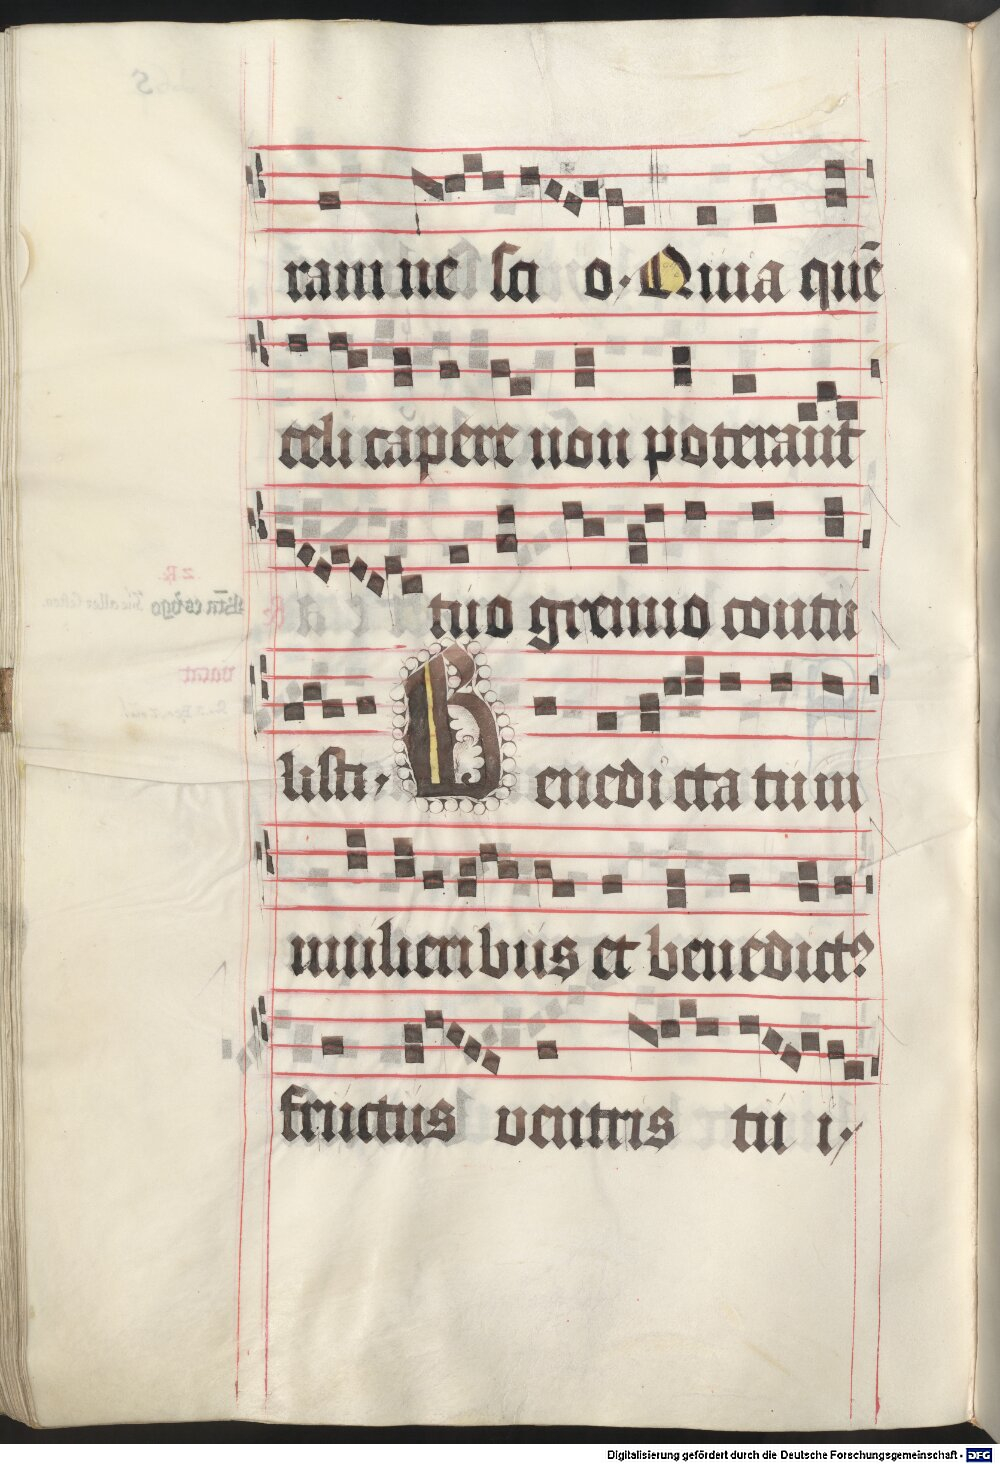 ram nescio. Quia quē
celi capere non poterant
tuo gremio contu
listi, Benedicta tu in
mulieribus et benedict⁹
fructus ventris tui.
Digitalisierung gefördert durch die Deutsche Forschungsgemeinschaft - DFG